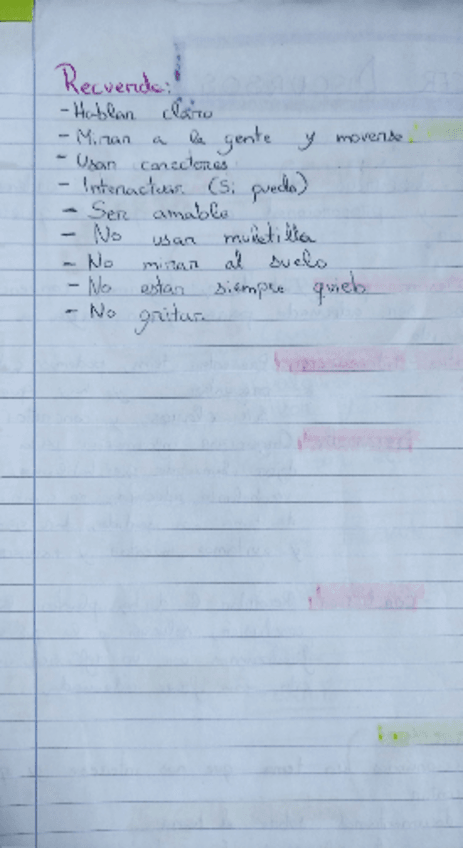 Recuerda:
- Hablar claro
- Mirar a la gente y moverse.
- Usar conectores
- Interactuar (Si puedo)
- Ser amable
- No usar muletilla
- No mirar al suelo
- No estar siempre quieto
- No gritar